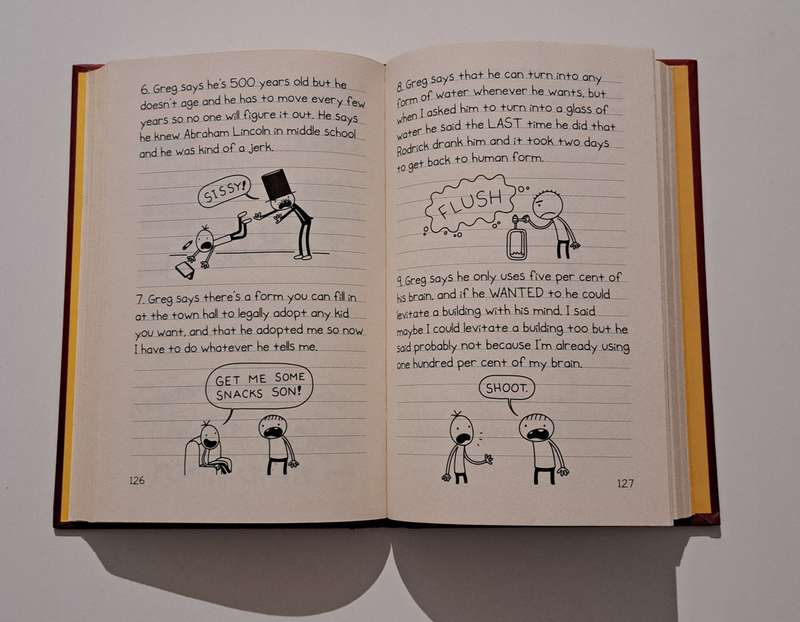 6. Greg says he's 500 years old but he
doesn't age and he has to move every few
years so no one will figure it out. He says
he knew Abraham Lincoln in middle school
and he was kind of a jerk.
SISSY!
7. Greg says there's a form you can fill in
at the town hall to legally adopt any kid
you want, and that he adopted me so now
I have to do whatever he tells me.
GET ME SOME
SNACKS SON!
126
8. Greg says that he can turn into any
form of water whenever he wants, but
when I asked him to turn into a glass of
water he said the LAST time he did that
Rodrick drank him and it took two days
to get back to human form.
FLUSH
9. Greg says he only uses five per cent of
his brain, and if he WANTED to he could
levitate a building with his mind. I said
maybe I could levitate a building too but he
said probably not because I'm already using
one hundred per cent of my brain.
SHOOT.
127